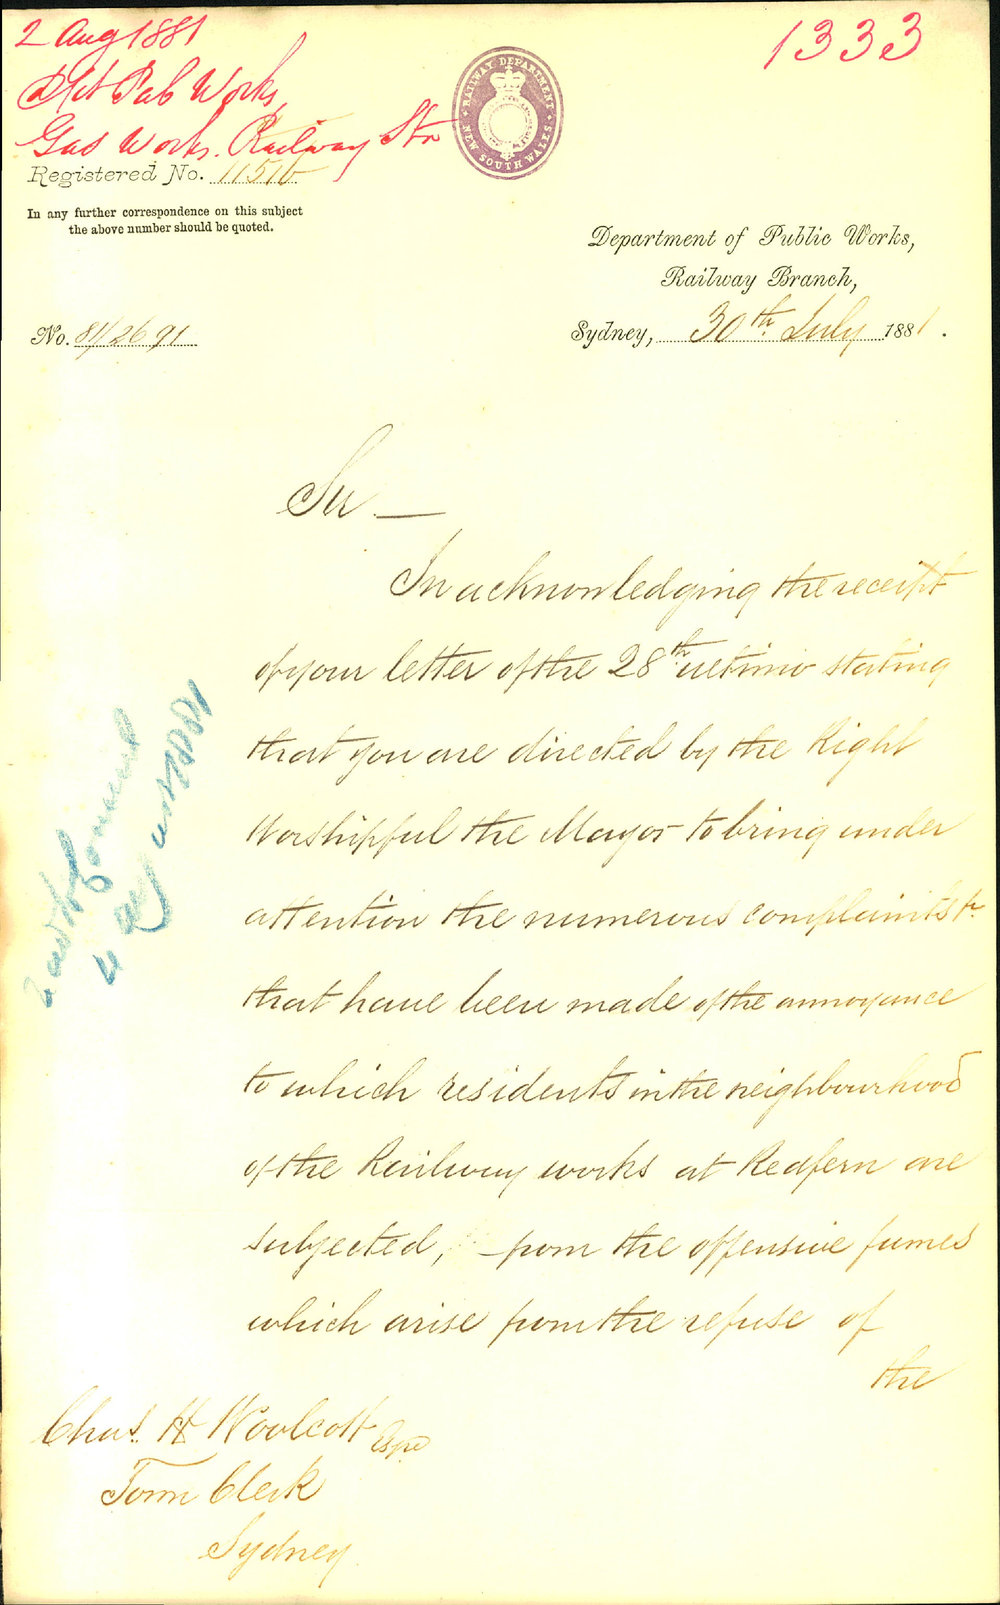 2 Aug 1881
1333
Dpt Pub Works,
Gas Works. Railway Stn
RAILWAY DEPARTMENT
NEW SOUTH WALES
Registered No. 11516
In any further correspondence on this subject
the above number should be quoted.
Department of Public Works,
Railway Branch,
No. 81/2691
Sydney, 30th July 1881.
Sir —
In acknowledging the receipt
of your letter of the 28th ultimo stating
that you are directed by the Right
Worshipful the Mayor to bring under
attention the numerous complaints &c
that have been made of the annoyance
to which residents in the neighbourhood
of the Railway works at Redfern are
subjected, from the offensive fumes
which arise from the refuse of
the
Chas. H Woolcott Esqre
Town Clerk
Sydney